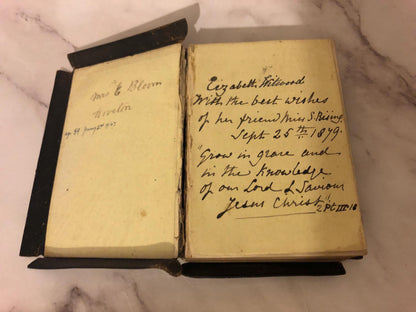 Mrs E Bloom
Elizabeth Willwood
With the best wishes
of her friend Miss S. Rising.
Sept 25th 1879.
"Grow in grace and
in the Knowledge
of our Lord & Saviour
Jesus Christ"
2 Pt III 18